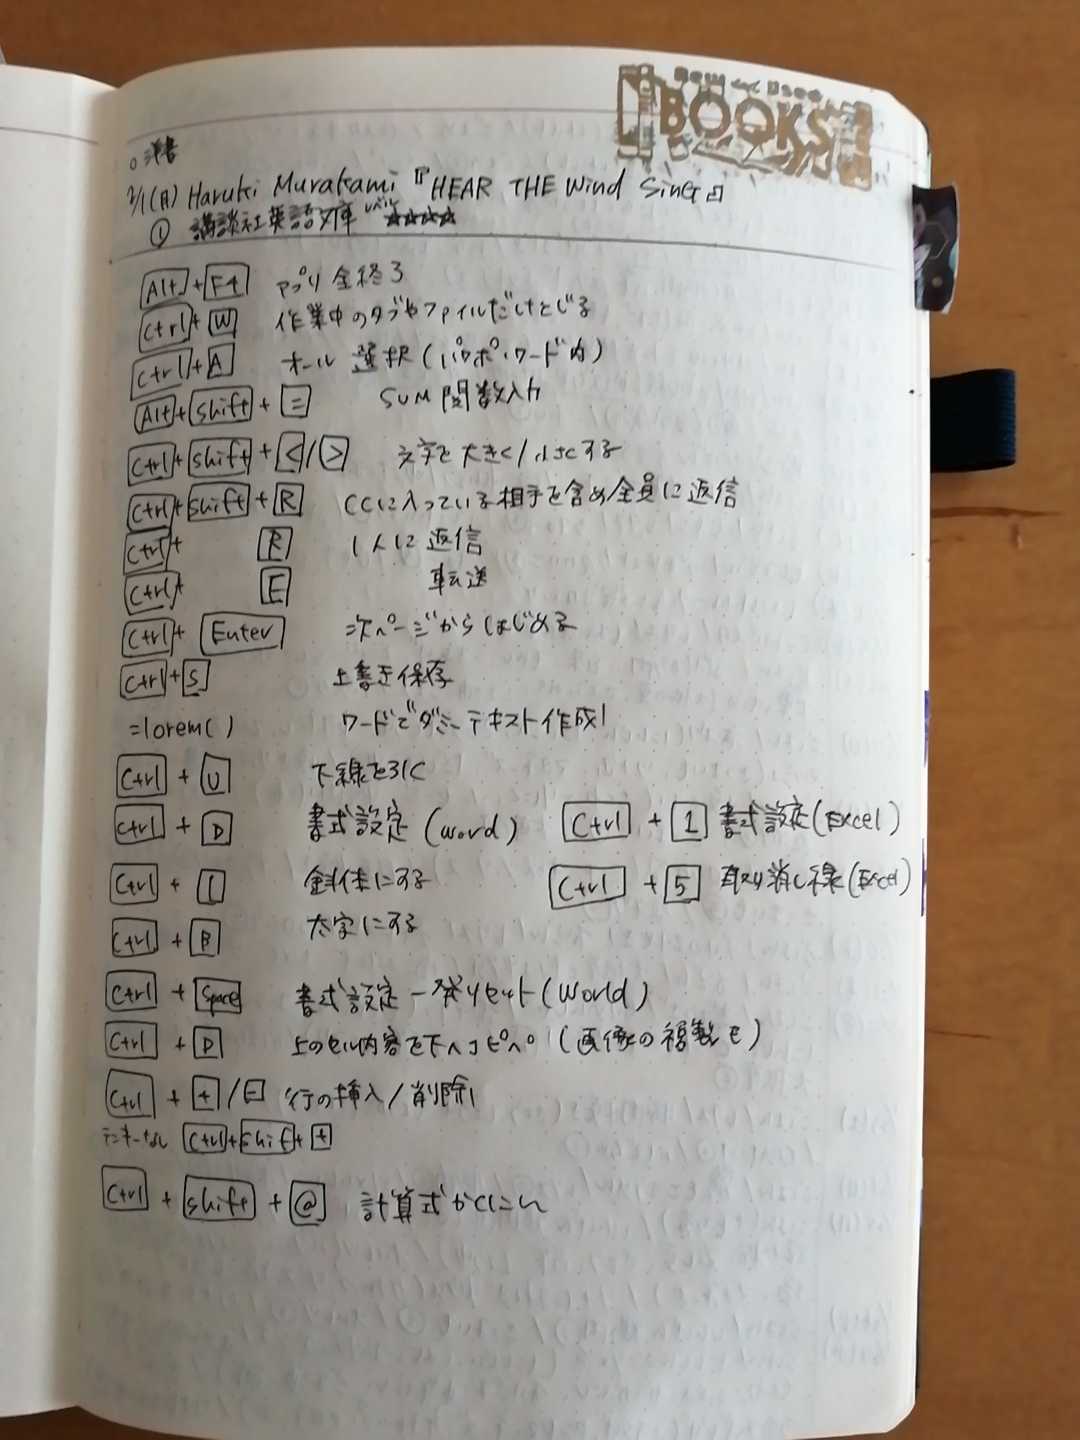 BOOKS
○ 洋書
2/1(日) Haruki Murakami 『HEAR THE Wind SinG』
① 講談社英語文庫 レベル ☆☆☆☆
Alt + F4 アプリ全終了
Ctrl + W 作業中のタブやファイルだけとじる
Ctrl + A オール選択(パワポ・ワード内)
Alt + Shift + = SUM関数入力
Ctrl + Shift + < / > 文字を大きく/小さくする
Ctrl + Shift + R CCに入っている相手を含め全員に返信
Ctrl + R 1人に返信
Ctrl + E 転送
Ctrl + Enter 次ページからはじめる
Ctrl + S 上書き保存
=lorem() ワードでダミーテキスト作成
Ctrl + U 下線を引く
Ctrl + D 書式設定(word) Ctrl + 1 書式設定(Excel)
Ctrl + I 斜体にする Ctrl + 5 取り消し線(Excel)
Ctrl + B 太字にする
Ctrl + Space 書式設定一発リセット(World)
Ctrl + D 上のセル内容を下へコピペ (画像の複製も)
Ctrl + + / - 行の挿入/削除
テンキーなし Ctrl + Shift + +
Ctrl + Shift + @ 計算式かくにん